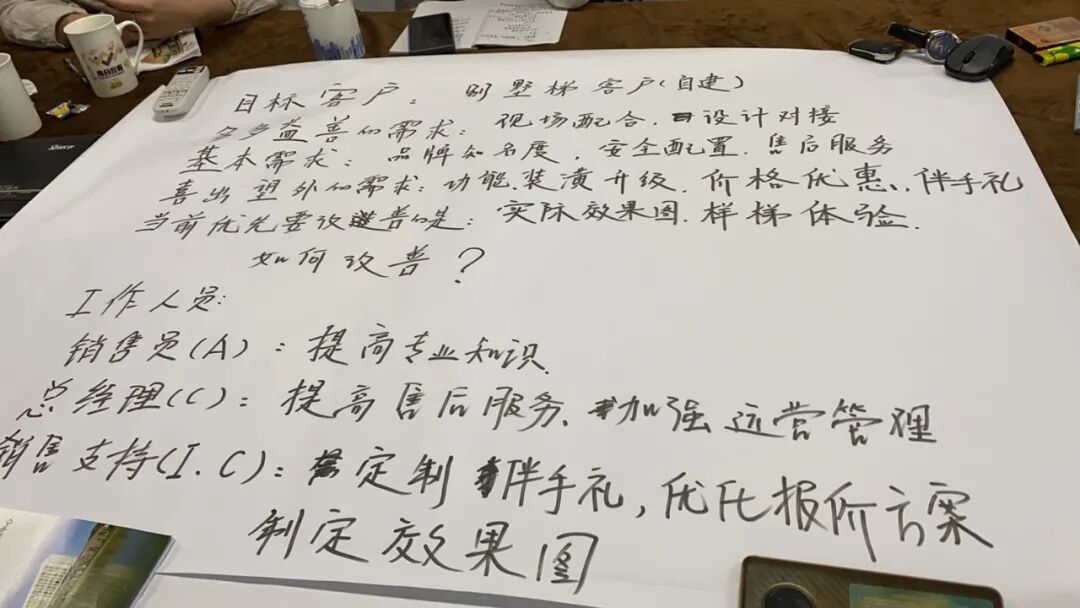 目标客户：别墅梯客户(自建)
多多益善的需求：现场配合.设计对接
基本需求：品牌知名度，安全配置.售后服务
喜出望外的需求：功能.装潢升级.价格优惠、伴手礼
当前优先要改善的是：实际效果图.样梯体验.
如何改善？
工作人员：
销售员(A)：提高专业知识.
总经理(C)：提高售后服务.加强运营管理
销售支持(I.C)：定制伴手礼，优化报价方案
制定效果图